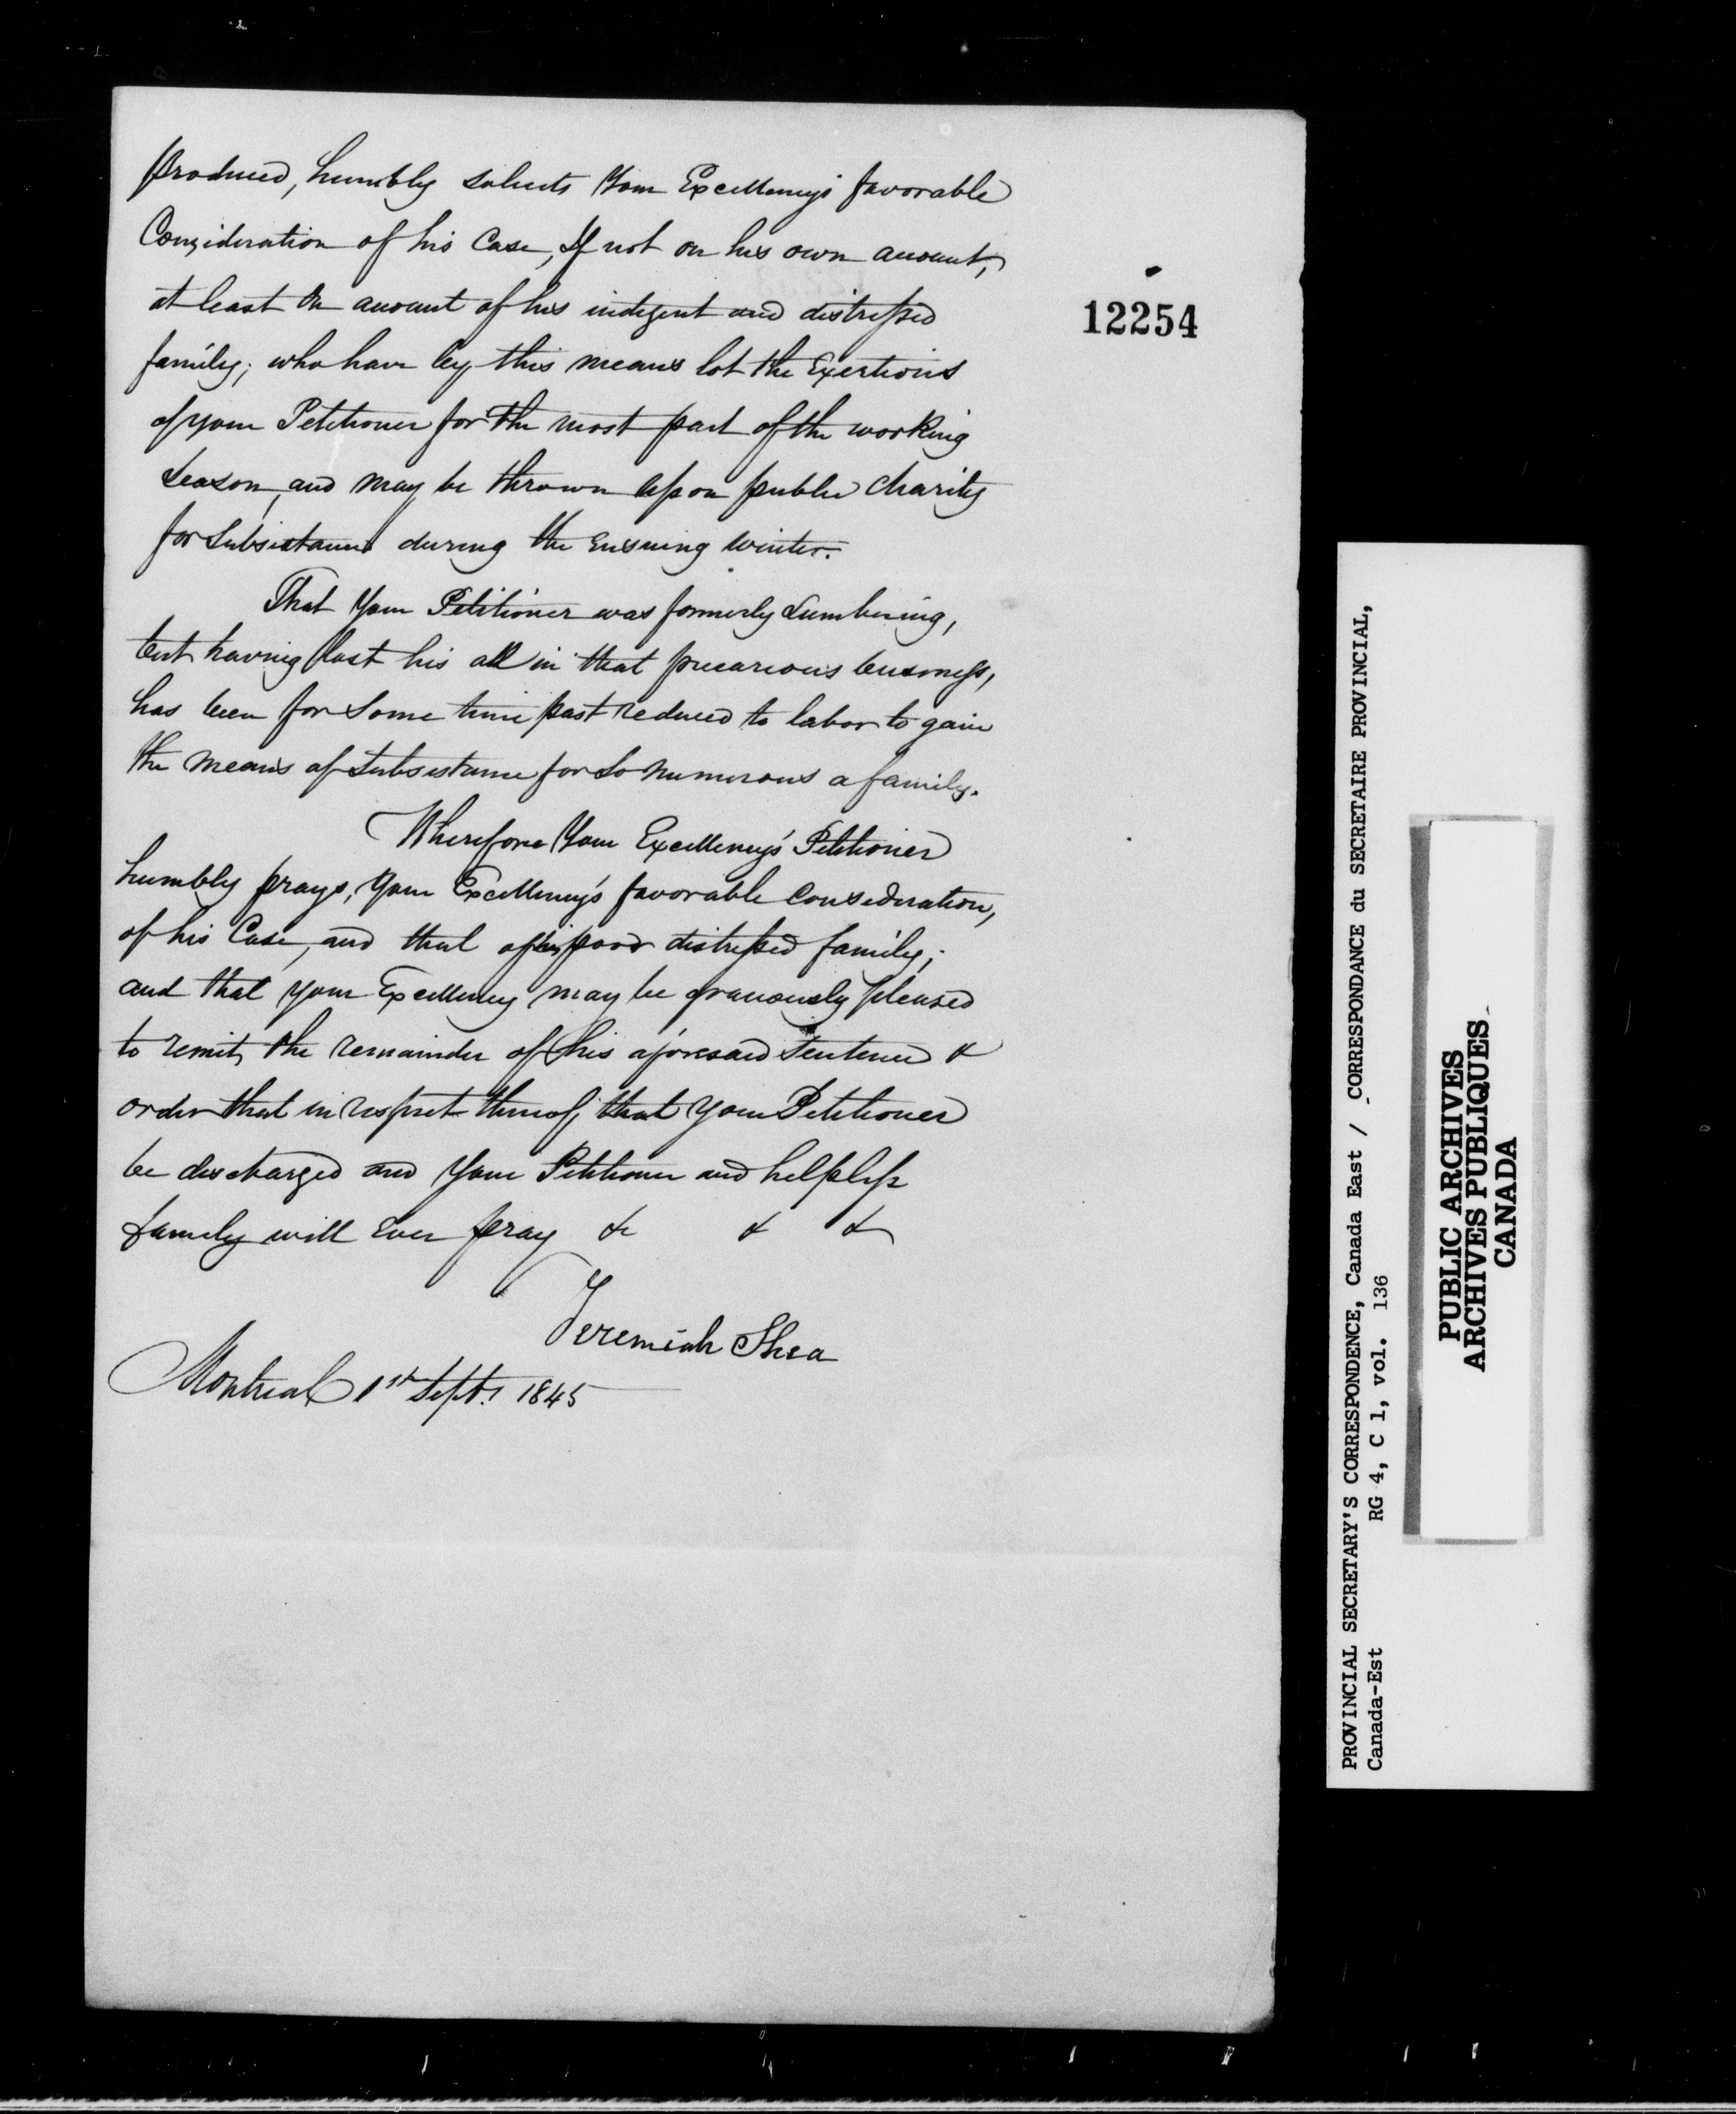 produced, humbly solicits Your Excellency's favorable
Consideration of his Case, If not on his own account,
at least on account of his indigent and distressed
family; who have by this means lot the Exertions
of your Petitioner for the most part of the working
Season, and may be thrown upon public Charity
for Subsistance during the Ensuing Winter.
That Your Petitioner was formerly Lumbering,
but having lost his all in that precarious business,
has been for Some time past reduced to labor to gain
the means of Subsistance for So numerous a family.
Wherefore Your Excellency's Petitioner
humbly prays, Your Excellency's favorable Consideration,
of his Case, and that of his poor distressed family;
and that your Excellency may be graciously pleased
to remit, the remainder of his aforesaid Sentence &
order that in respect thereof, that Your Petitioner
be discharged and Your Petitioner and helpless
family will Ever pray &c & &
Jeremiah Shea
Montreal 1st Septr. 1845
12254
PROVINCIAL SECRETARY'S CORRESPONDENCE, Canada East / CORRESPONDANCE du SECRETAIRE PROVINCIAL,
Canada-Est RG 4, C 1, vol. 136
PUBLIC ARCHIVES
ARCHIVES PUBLIQUES
CANADA